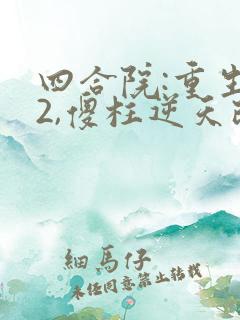 四合院:重生
2,傻柱逆天改
細馬仔
未经同意禁止转载